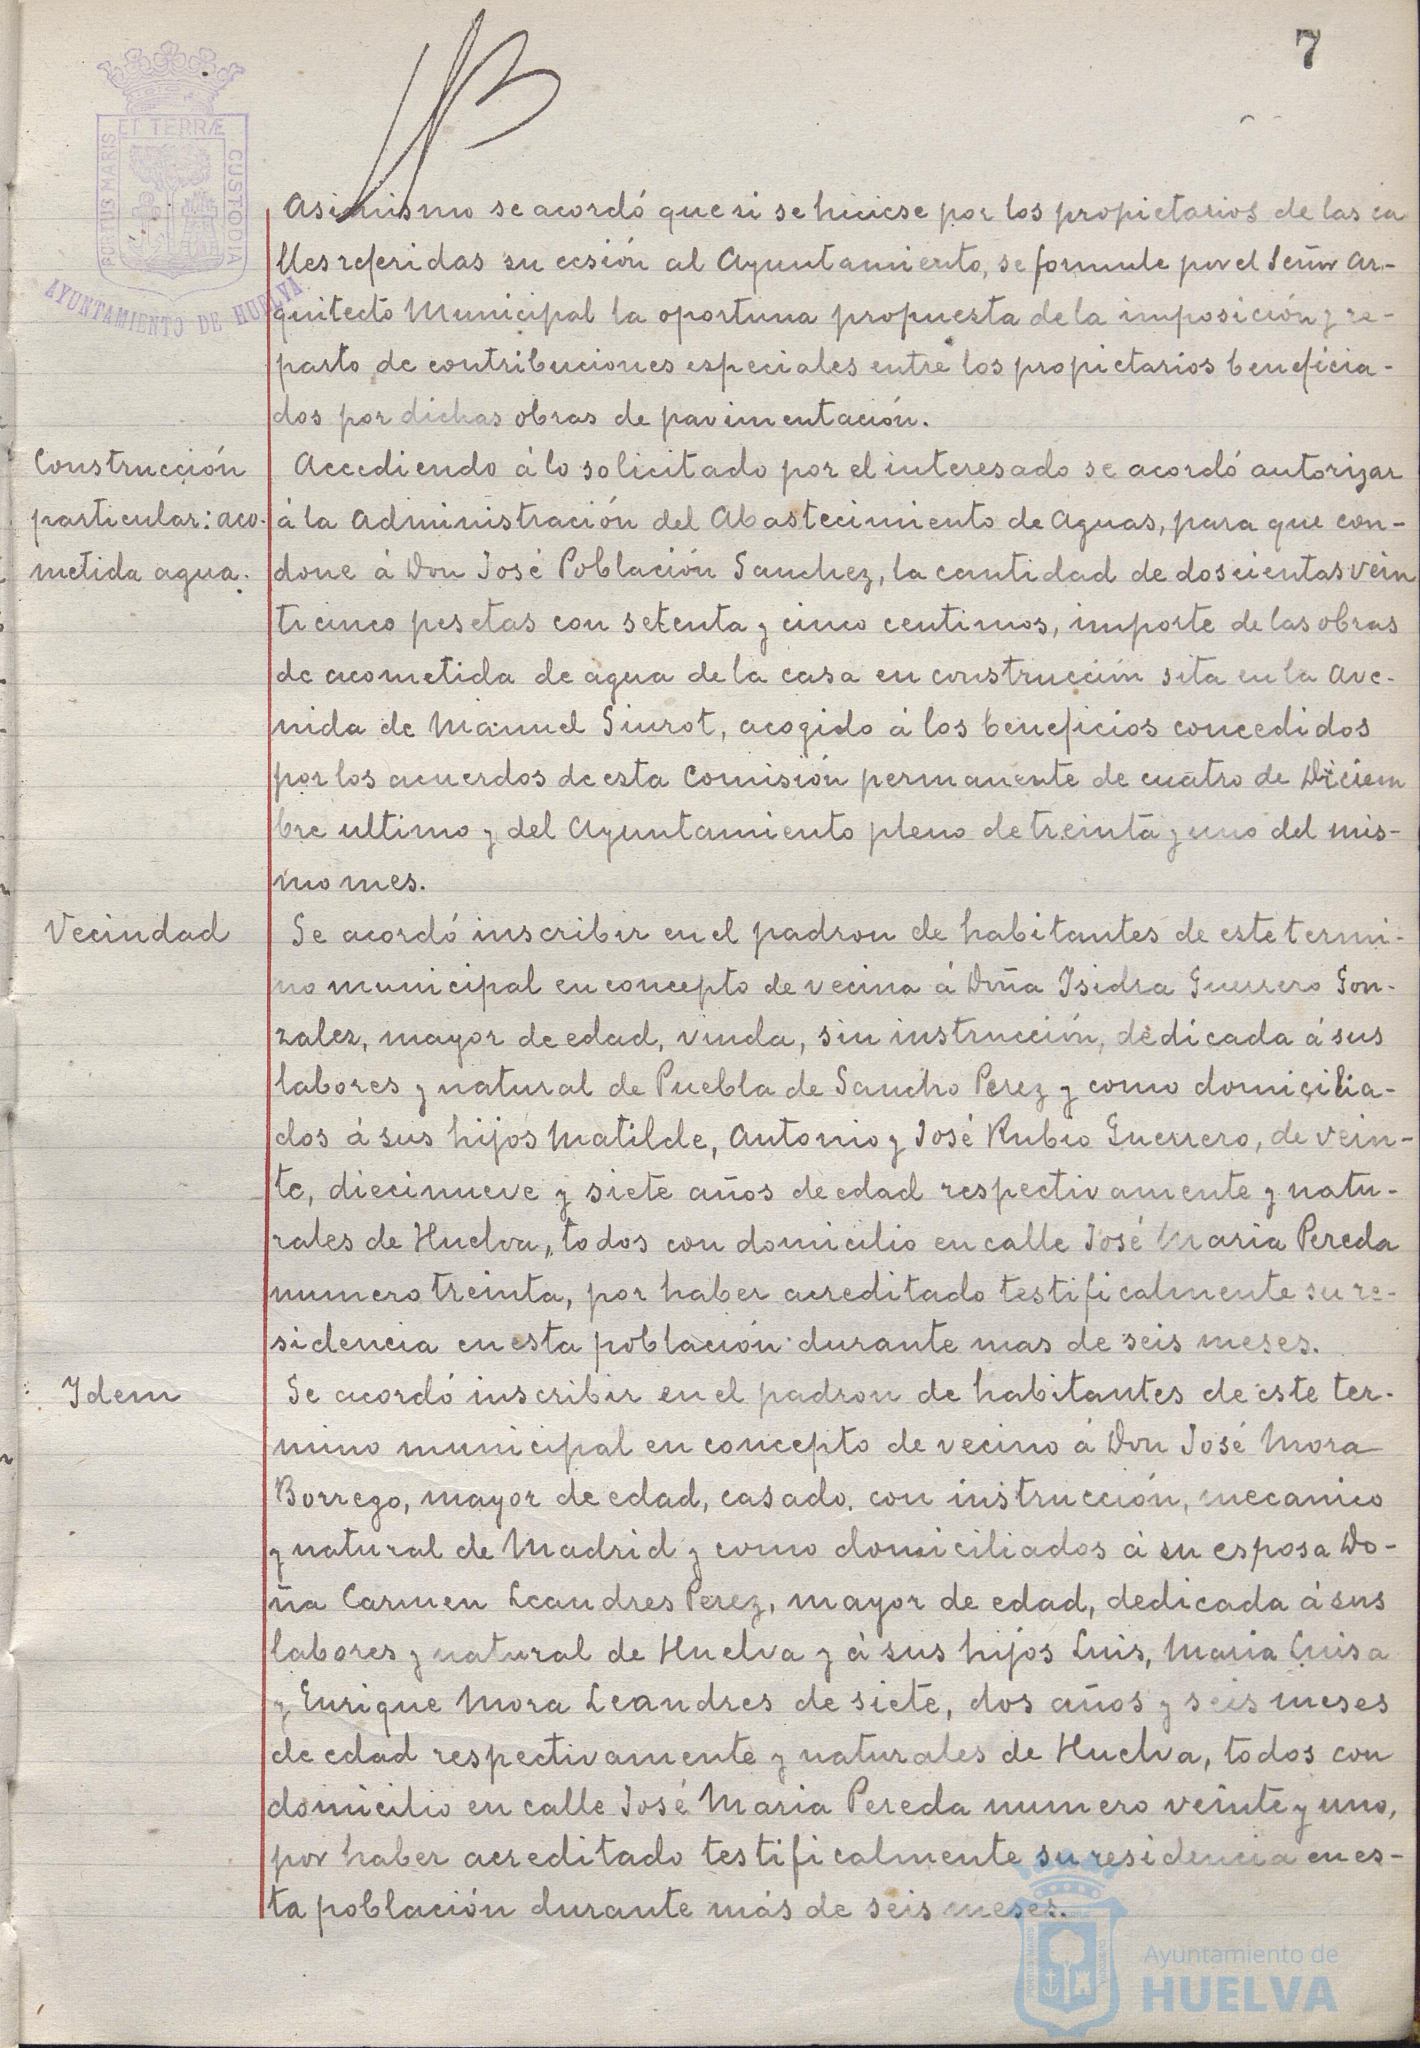 7
PORTUS MARIS
ET TERRÆ
CUSTODIA
AYUNTAMIENTO DE HUELVA
Asimismo se acordó que si se hiciese por los propietarios de las ca
lles referidas su cesión al Ayuntamiento, se formule por el Señor Ar-
quitecto Municipal la oportuna propuesta de la imposición y re-
parto de contribuciones especiales entre los propietarios beneficia-
dos por dichas obras de pavimentación.
Construcción
particular: aco-
metida agua.
Accediendo á lo solicitado por el interesado se acordó autorizar
á la Administración del Abastecimiento de Aguas, para que con-
done á Don José Población Sanchez, la cantidad de doscientas vein
ticinco pesetas con setenta y cinco centimos, importe de las obras
de acometida de agua de la casa en construcción sita en la Ave-
nida de Manuel Siurot, acogido á los beneficios concedidos
por los acuerdos de esta Comisión permanente de cuatro de Diciem
bre ultimo y del Ayuntamiento pleno de treinta y uno del mis-
mo mes.
Vecindad
Se acordó inscribir en el padron de habitantes de este termi-
no municipal en concepto de vecina á Doña Isidra Guerrero Gon-
zalez, mayor de edad, viuda, sin instrucción, dedicada á sus
labores y natural de Puebla de Sancho Perez y como domicilia-
dos á sus hijos Matilde, Antonio y José Rubio Guerrero, de vein-
te, diecinueve y siete años de edad respectivamente y natu-
rales de Huelva, todos con domicilio en calle José Maria Pereda
numero treinta, por haber acreditado testificalmente su re-
sidencia en esta población durante mas de seis meses.
Idem
Se acordó inscribir en el padron de habitantes de este ter-
mino municipal en concepto de vecino á Don José Mora
Borrego, mayor de edad, casado, con instrucción, mecanico
y natural de Madrid y como domiciliados á su esposa Do-
ña Carmen Leandres Perez, mayor de edad, dedicada á sus
labores y natural de Huelva y á sus hijos Luis, Maria Luisa
y Enrique Mora Leandres de siete, dos años y seis meses
de edad respectivamente y naturales de Huelva, todos con
domicilio en calle José Maria Pereda numero veinte y uno,
por haber acreditado testificalmente su residencia en es-
ta población durante más de seis meses.
Ayuntamiento de
HUELVA